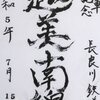 長良川鉄
越美南線
和5年7月15